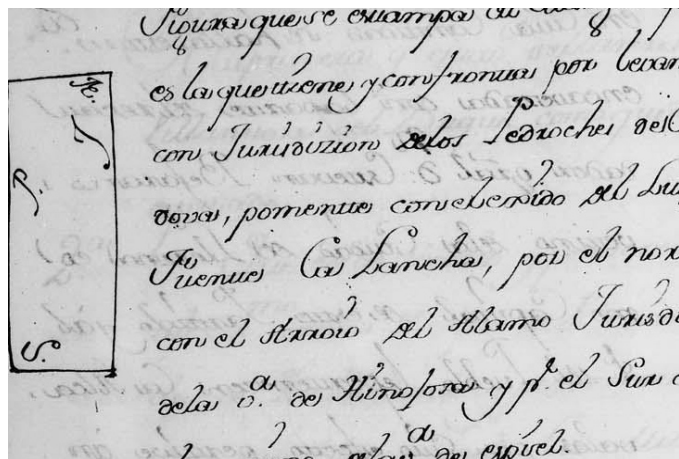 Figura que se estampa al
es la que tiene y confronta por levan
con Jurisdizion de los Pedroches de C
dova, ponientte con el exido del Lu
Fuentte la Lancha, por el nor
con el Arroio del Alamo Jurisdi
de la v.ª de Hinojosa y p.r el Sur
de la v.ª de espiel.
N.
L
P.
S.